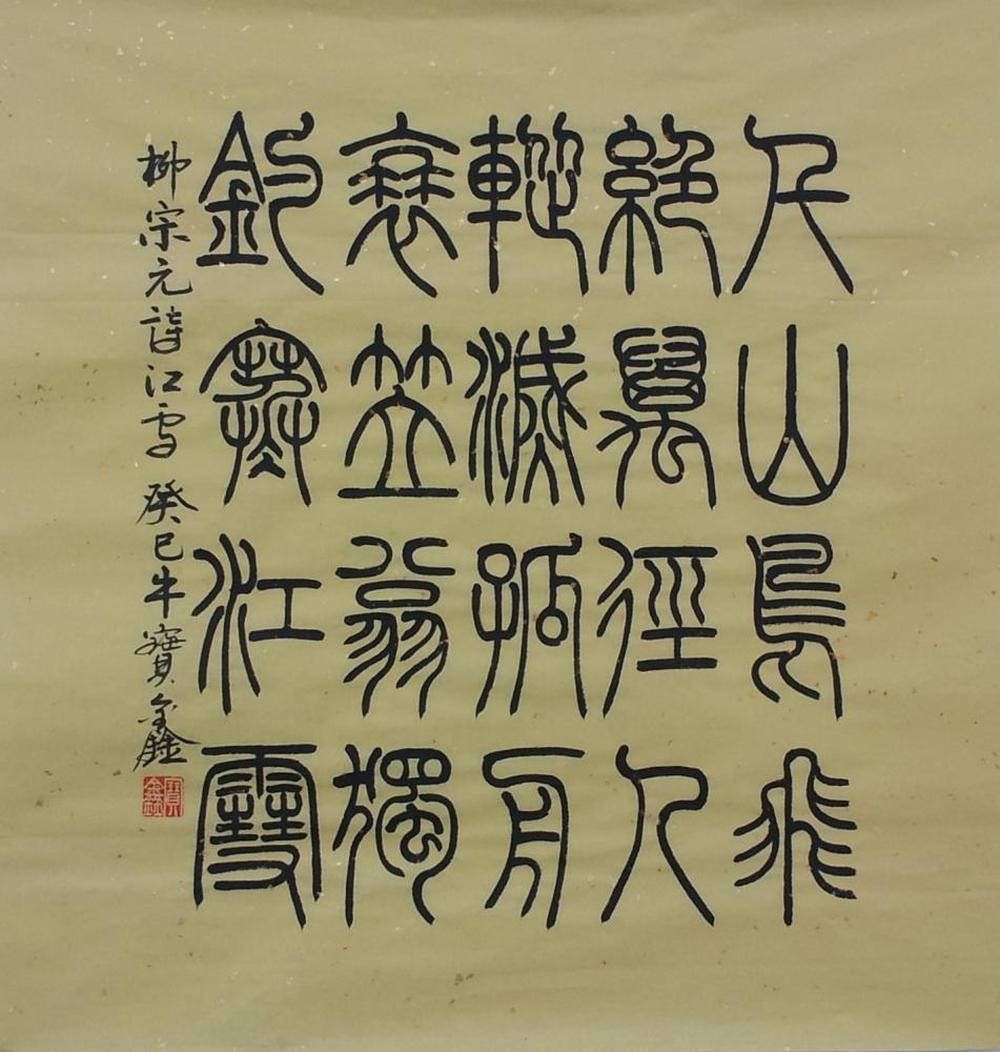 千山鳥飛
絕萬徑人
蹤滅孤舟
衰笠翁獨
釣寒江雪
柳宗元詩江雪 癸巳牛寶鑫
寶鑫